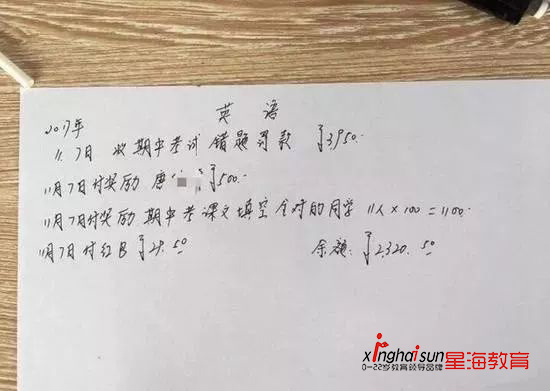 英语
2017年
11.7日 收期中考试错题罚款 ¥3950.
11月7日付奖励 唐 ¥500.
11月7日付奖励 期中考课文填空全对的同学 11人×100=1100.
11月7日付红B ¥29.50 余额: ¥2320.50
xinghaisun 星海教育
0-22岁教育领导品牌